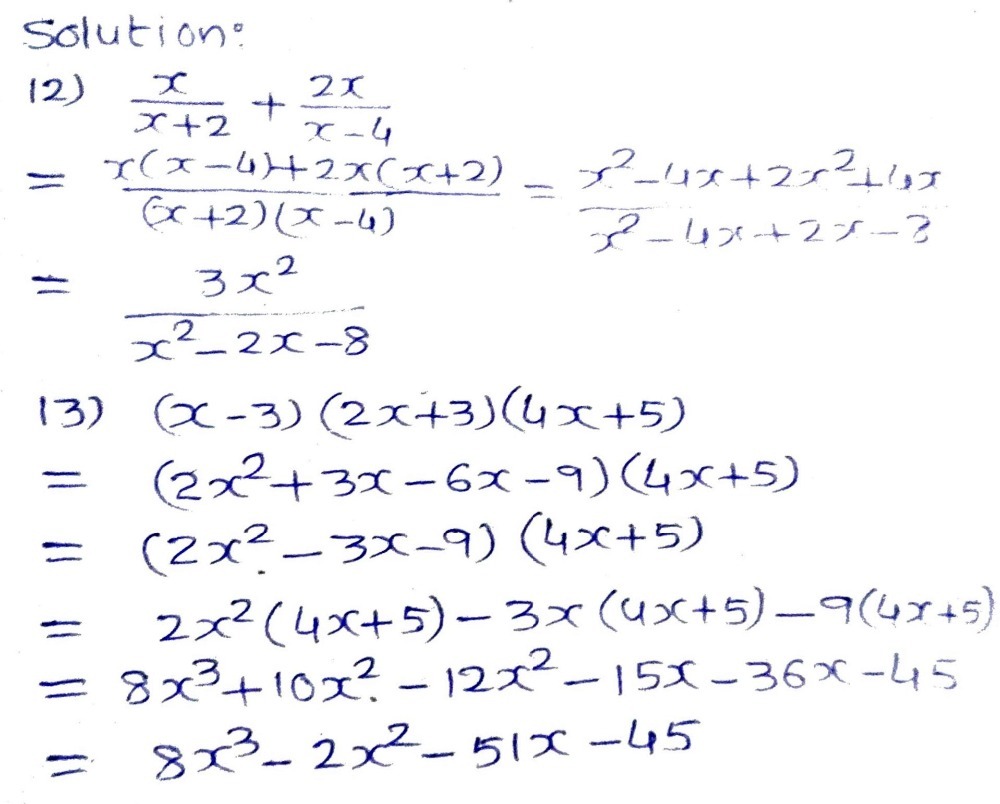 Solution:
12) x/(x+2) + 2x/(x-4)
= (x(x-4)+2x(x+2))/((x+2)(x-4)) = (x²-4x+2x²+4x)/(x²-4x+2x-8)
= 3x²/(x²-2x-8)
13) (x-3)(2x+3)(4x+5)
= (2x²+3x-6x-9)(4x+5)
= (2x²-3x-9)(4x+5)
= 2x²(4x+5)-3x(4x+5)-9(4x+5)
= 8x³+10x²-12x²-15x-36x-45
= 8x³-2x²-51x-45